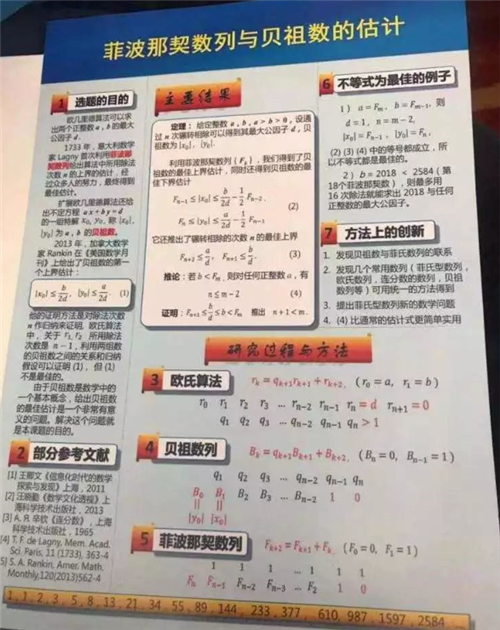 菲波那契数列与贝祖数的估计
1 选题的目的
欧几里德算法可以求
出两个正整数 a, b 的最大
公因子 d。
1733 年，意大利数学
家 Lagny 首次利用菲波那
契数列给出算法中所用除法
次数 n 的上界的估计，经
过众多人的努力，最终得到
最佳估计。
扩展欧几里德算法还给
出不定方程 ax + by = d
的一组特解 x₀, y₀，称 |x₀|,
|y₀| 为 a, b 的贝祖数。
2013 年，加拿大数学
家 Rankin 在《美国数学月
刊》上给出了贝祖数的第一
个上界估计：
|x₀| ≤ b/2d, |y₀| ≤ a/2d (1)
他的证明方法是对除法次数
n 作归纳来证明。欧氏算法
中，关于 r₁, r₂ 所用除法
次数是 n − 1，利用两组数
的贝祖数之间的关系和归纳
假设可以证明 (1)，但 (1)
不是最佳的。
由于贝祖数是数学中的
一个基本概念，给出贝祖数
的最佳估计是一个非常有意
义的问题。解决这个问题就
是本课题的目的。
2 部分参考文献
[1] 王鄂文《信息化时代的数学
探索与发现》上海，2011
[2] 汪晓勤《数学文化透视》上
海科学技术出版社，2013
[3] А. Я. 辛钦《连分数》，上海
科学技术出版社，1965
[4] T. F. de Lagny, Mem. Acad.
Sci. Paris, 11 (1733), 363-4
[5] S. A. Rankin, Amer. Math.
Monthly,120(2013)562-4
主要结果
定理：给定整数 a, b, a > b > 0，设通
过 n 次辗转相除可以得到其最大公因子 d，贝
祖数为 |x₀|, |y₀|。
利用菲波那契数列 {Fₖ}，我们得到了贝
祖数的最佳上界估计，同时还得到贝祖数的最
佳下界估计
Fₙ₋₁ ≤ |x₀| ≤ b/2d − 1/2 Fₙ₋₂,
(2)
Fₙ ≤ |y₀| ≤ a/2d − 1/2 Fₙ₋₁.
它还推出了辗转相除的次数 n 的最佳上界
Fₙ₊₂ ≤ a/d, Fₙ₊₁ ≤ b/d. (3)
推论：若 b < Fₘ，则对任何正整数 a，有
n ≤ m − 2 (4)
证明：Fₙ₊₁ ≤ b/d ≤ b < Fₘ 推出 n + 1 < m.
研究过程与方法
3 欧氏算法 rₖ = qₖ₊₁rₖ₊₁ + rₖ₊₂, (r₀ = a, r₁ = b)
r₀ r₁ r₂ r₃ ... rₙ₋₂ rₙ₋₁ rₙ = d rₙ₊₁ = 0
q₁ q₂ q₃ ... qₙ₋₂ qₙ₋₁ qₙ > 1
4 贝祖数列 Bₖ = qₖ₊₁Bₖ₊₁ + Bₖ₊₂, (Bₙ = 0, Bₙ₋₁ = 1)
q₁ q₂ q₃ ... qₙ₋₂ qₙ₋₁ qₙ
B₀ B₁ B₂ B₃ ... Bₙ₋₂ 1 0
|| ||
|y₀| |x₀|
5 菲波那契数列 Fₖ₊₂ = Fₖ₊₁ + Fₖ, (F₀ = 0, F₁ = 1)
1 1 1 ... 1 1 1
Fₙ Fₙ₋₁ Fₙ₋₂ Fₙ₋₃ ... F₂ 1 0
6 不等式为最佳的例子
1) a = Fₘ, b = Fₘ₋₁, 则
d = 1, n = m − 2,
|x₀| = Fₙ₋₁, |y₀| = Fₙ.
(2) (3) (4) 中的等号都成立，所
以不等式都是最佳的。
2) b = 2018 < 2584 (第
18个菲波那契数)，则最多用
16 次除法就能求出 2018 与任何
正整数的最大公因子。
7 方法上的创新
1. 发现贝祖数与菲氏数列的联系
2. 发现几个常用数列（菲氏型数列，
欧氏数列，连分数的数列，贝祖
数列等）可用统一的方法得到
3. 提出菲氏型数列新的数学问题
4. (4) 比通常的估计式更简单实用
1, 1, 2, 3, 5, 8, 13, 21, 34, 55, 89, 144, 233, 377, 610, 987, 1597, 2584